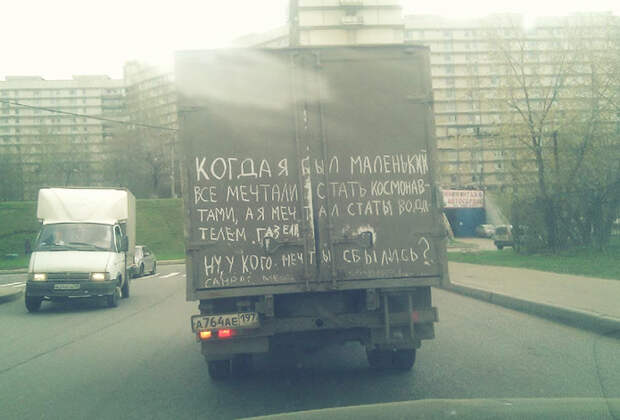 КОГДА Я БЫЛ МАЛЕНЬКИЙ
ВСЕ МЕЧТАЛИ СТАТЬ КОСМОНАВ-
ТАМИ, А Я МЕЧТАЛ СТАТЬ ВОДИ-
ТЕЛЕМ ГАЗЕЛИ
НУ, У КОГО МЕЧТЫ СБЫЛИСЬ?
А764АЕ 197
АВТОСЕРВИС